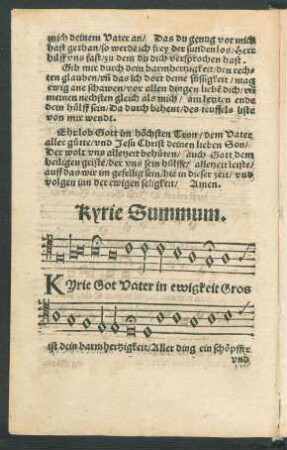 mich deinem Vater an/ Das du genug vor mich
hast gethan/ so werde ich frey der sunden los/ Herr
hülff vns fast/ zu dem du dich versprochen hast.
Gib mir durch dein barmhertzigkeit/ den rech-
ten glauben/ vñ das ich dort deine süssigkeit/ mag
ewig ane schawen/ vor allen dingen liebē dich/ vñ
meinen nechsten gleich als mich/ am letzten ende
dein hülff sein/ Da durch behent/ des teuffels liste
von mir wendt.
Ehr lob Gott im höchsten Tron/ dem Vater
aller gütte/ vnd Jesu Christ deinen lieben Son/
Der wolt vns allezeit behüten/ auch Gott dem
heiligen geiste/ der vns sein hülffe/ allezeit leiste/
auff das wir im gefellig sein/ hie in dieser zeit/ vnd
volgen inn der ewigen seligkeit/ Amen.
Kyrie Summum.
KYrie Got Vater in ewigkeit Gros
ist dein barmhertzigkeit/ Aller ding ein schöpffer
vnd